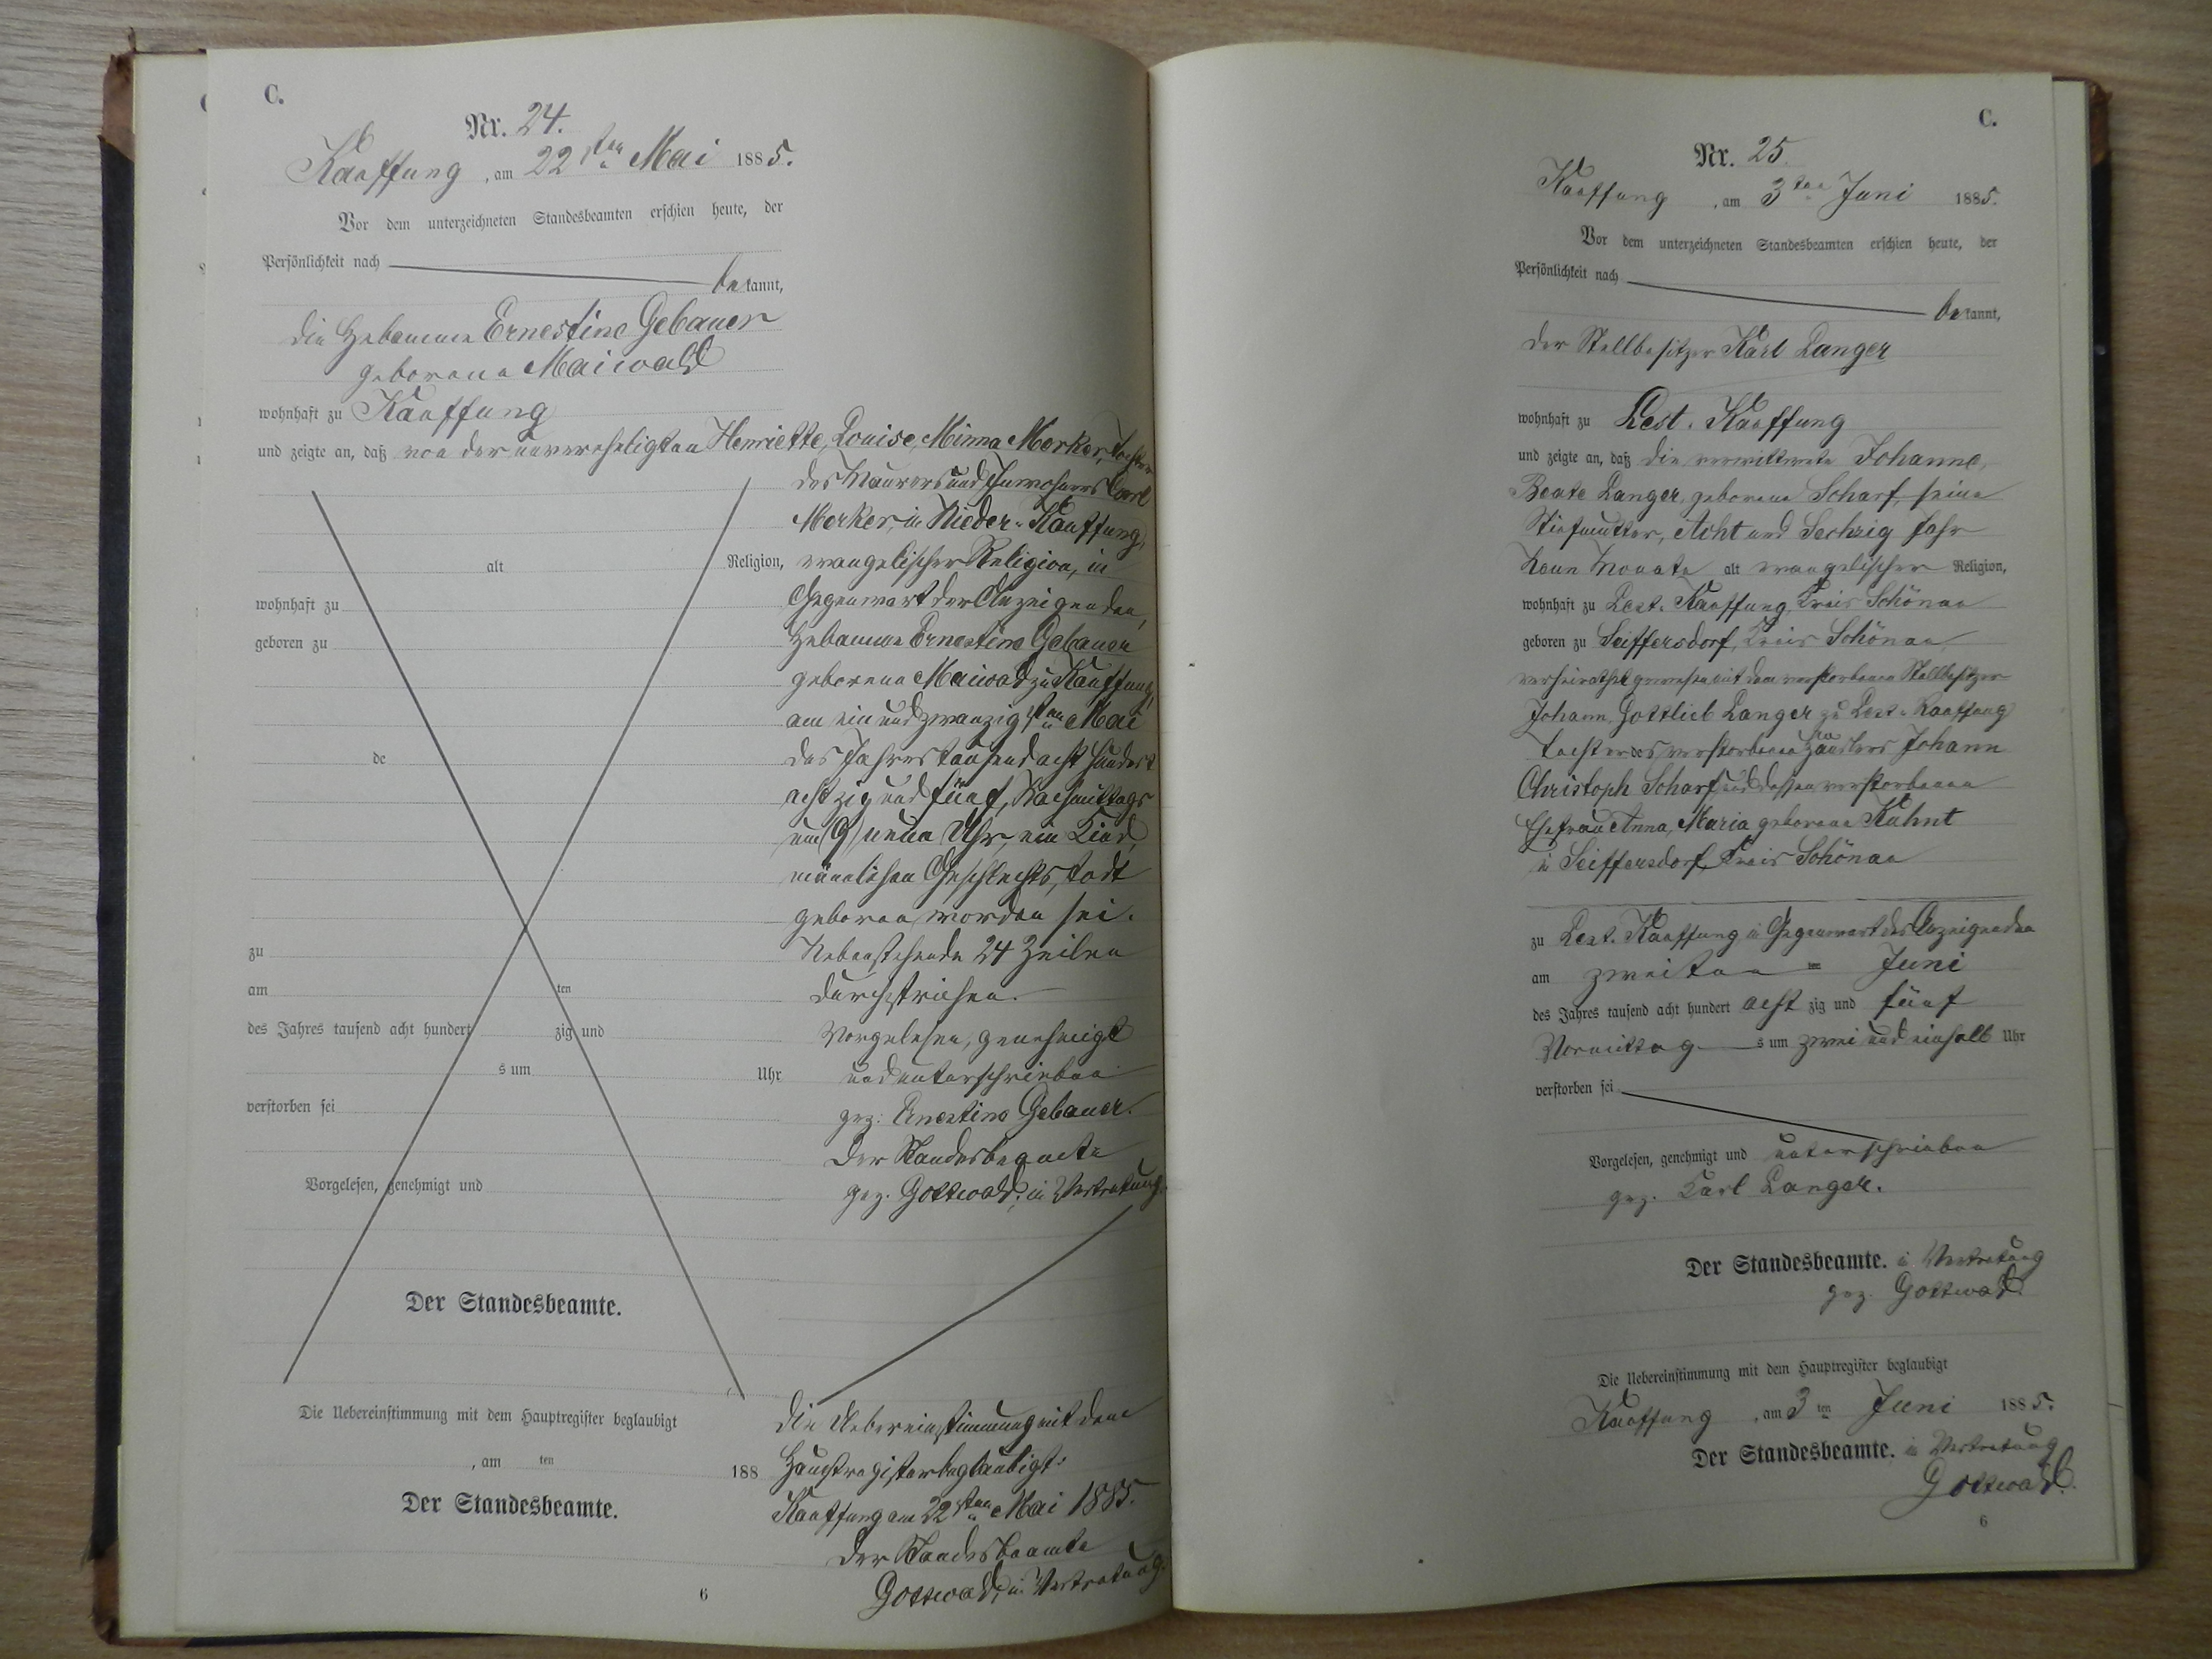 C.
Nr. 24.
Kauffung, am 22sten Mai 1885.
Vor dem unterzeichneten Standesbeamten erschien heute, der
Persönlichkeit nach
bekannt,
die Hebamme Ernestine Gebauer
geborene Maiwald
wohnhaft zu Kauffung
und zeigte an, daß von der unverehelichten Henriette, Louise, Minna Merker, Tochter
des Maurers und Inwohners Carl
Merker, in Nieder-Kauffung,
alt Religion, evangelischer Religion, in
Gegenwart der Anzeigenden,
wohnhaft zu
geboren zu Hebamme Ernestine Gebauer
geborene Maiwald zu Kauffung,
am ein und zwanzigsten Mai
de des Jahres tausend acht hundert
achtzig und fünf, Nachmittags
um 9 neun Uhr, ein Kind,
männlichen Geschlechts, todt
geboren worden sei.
zu Nebenstehende 24 Zeilen
am ten durchstrichen.
des Jahres tausend acht hundert zig und Vorgelesen, genehmigt
s um Uhr und unterschrieben
verstorben sei gez: Ernestine Gebauer.
Der Standesbeamte
Vorgelesen, genehmigt und gez. Gottwald, in Vertretung.
Der Standesbeamte.
Die Uebereinstimmung mit dem Hauptregister beglaubigt
Die Uebereinstimmung mit dem
, am ten 188 Hauptregister beglaubigt:
Der Standesbeamte. Kauffung am 22sten Mai 1885.
Der Standesbeamte
Gottwald, in Vertretung.
6
C.
Nr. 25.
Kauffung, am 3ten Juni 1885.
Vor dem unterzeichneten Standesbeamten erschien heute, der
Persönlichkeit nach
bekannt,
der Stellbesitzer Karl Langer
wohnhaft zu Lest. Kauffung
und zeigte an, daß die verwittwete Johanne,
Beate Langer, geborene Scharf, seine
Stiefmutter, Acht und Sechzig Jahr
Neun Monate alt evangelischer Religion,
wohnhaft zu Lest. Kauffung, Kreis Schönau
geboren zu Seiffersdorf, Kreis Schönau,
verheirathet gewesen mit dem verstorbenen Stellbesitzer
Johann, Gottlieb Langer zu Lest. Kauffung
Tochter des verstorbenen Häuslers Johann
Christoph Scharf und dessen verstorbenen
Ehefrau Anna, Maria geborene Kuhnt
in Seiffersdorf, Kreis Schönau
zu Lest. Kauffung, in Gegenwart des Anzeigenden
am zweiten ten Juni
des Jahres tausend acht hundert acht zig und fünf
Vormittags um zwei und einhalb Uhr
verstorben sei
Vorgelesen, genehmigt und unterschrieben
gez. Karl Langer.
Der Standesbeamte. in Vertretung
gez. Gottwald.
Die Uebereinstimmung mit dem Hauptregister beglaubigt
Kauffung, am 3 ten Juni 1885.
Der Standesbeamte. in Vertretung
Gottwald.
6